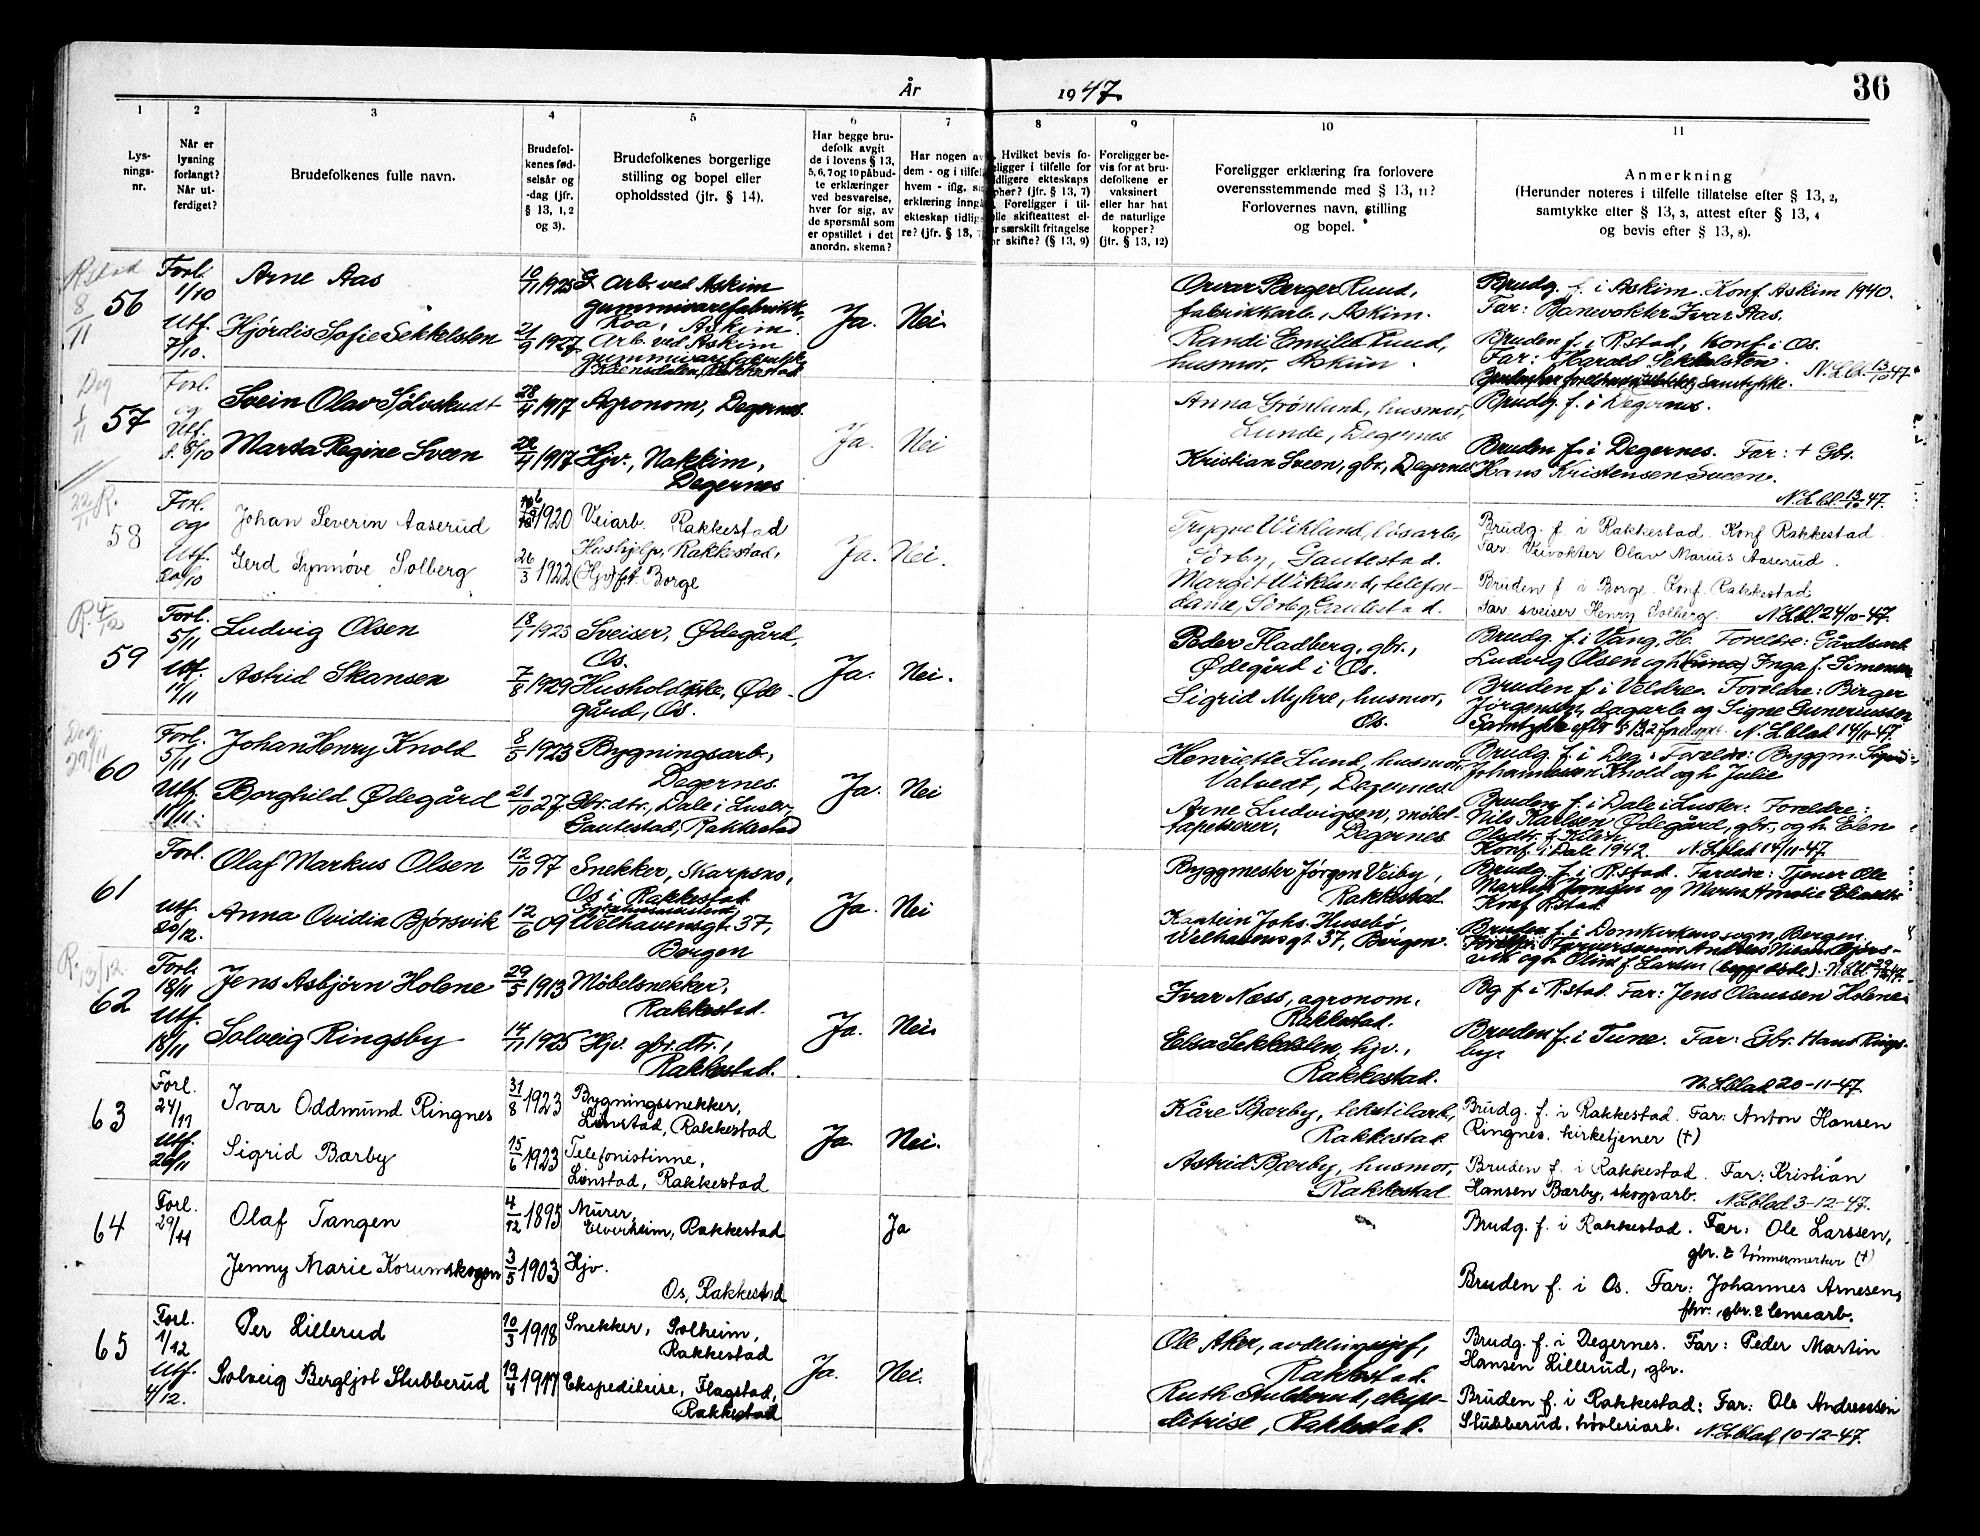 36
År 1947
1 2 3 4 5 6 7 8 9 10 11
Lysningsnr.
Når er lysning forlangt? Når utferdiget?
Brudefolkenes fulle navn.
Brudefolkenes fødselsår og -dag (jfr. § 13, 1, 2 og 3).
Brudefolkenes borgerlige stilling og bopel eller opholdssted (jfr. § 14).
Har begge brudefolk avgit de i lovens § 13, 5, 6, 7 og 10 påbudte erklæringer ved besvarelse, hver for sig, av de spørsmål som er opstillet i det anordn. skema?
Har nogen av dem - og i tilfelle hvem - iflg. sin erklæring inngått ekteskap tidligere? (jfr. § 13,
Hvilket bevis foreligger i tilfelle for tidligere ekteskaps ophør? (jfr. § 13, 7) Foreligger i tilfelle skifteattest eller særskilt fritagelse for skifte? (§ 13, 9)
Foreligger bevis for at brudefolkene er vaksinert eller har hat de naturlige kopper? (jfr. § 13, 12)
Foreligger erklæring fra forlovere overensstemmende med § 13, 11? Forlovernes navn, stilling og bopel.
Anmerkning
(Herunder noteres i tilfelle tillatelse efter § 13, 2, samtykke efter § 13, 3, attest efter § 13, 4 og bevis efter § 13, 8).
R.stad 8/11
56
Forl. 1/10
Utf. 7/10.
Arne Aas
10/11 1925
Arb. ved Askim gummivarefabrikk, Koa, Askim.
Hjørdis Sofie Sekkelsten
21/9 1927
Arb. ved Askim gummivarefabrikk
Ja. Nei.
Orvar Børger Ruud, fabrikkarb., Askim.
Randi Emilie Ruud, husmor, Askim.
Brudg. f. i Askim. Konf. Askim 1940.
Far: Banevokter Ivar Aas.
Bruden f. i R.stad, Konf. i Os.
Far: Harald Sekkelsten.
N.L.bl. 13/10 47
Deg 1/11
57
Forl. og Utf. 8/10
Svein Olav Sølvskudt
28/4 1917
Agronom, Degernes
Marta Regine Sveen
1917
Hjv., Nakkim, Degernes
Ja. Nei
Anna Grønlund, husmor, Lunde, Degernes
Kristian Sveen, gbr., Degernes
Brudg. f. i Degernes.
Bruden f. i Degernes. Far: † Gbr.
Hans Kristensen Sveen.
N.L.bl. 13/10 47.
22/11 R.
58
Forl. og Utf. 20/10
Johan Severin Aaserud
1920
Veiarb. Rakkestad
Gerd Synnøve Solberg
26/3 1922
Hushjelp, Rakkestad, (Hjv) f. Borge
Ja. Nei.
Trygve Wikland, løsarb., Sørby, Gautestad.
Margit Wikland, telefondame, Sørby, Gautestad.
Brudg. f. i Rakkestad. Konf Rakkestad
Far: Veivokter Olav Marius Aaserud.
Bruden f i Borge. Konf. Rakkestad
Far. sveiser Henry Solberg. N.L.bl. 24/10-47.
R. 4/12
59
Forl. 5/11
Utf. 11/11
Ludvig Olsen
18/1 1923
Sveiser, Ødegård, Os.
Astrid Skansen
7/8 1929
Husholdske, Ødegård, Os.
Ja. Nei.
Peder Fladberg, gbr., Ødegård i Os.
Sigrid Myhre, husmor, Os.
Brudg. f. i Vang, H. Foreldre: Gårdsarb
Ludvig Olsen og h. Inga f. Simensen
Bruden f. i Veldre. Foreldre: Birger
Jørgensen, dagarb og Signe Guneriussen
Samtykke eftr § 13,2 foreligger. N. L.blad 14/11-47.
Deg. 29/11
60
Forl. 5/11
Utf. 11/11.
Johan Henry Knold
8/5 1923
Bygningsarb., Degernes
Borghild Ødegård
21/10 27
Gbr. dtr., Dale i Luster, Gautestad, Rakkestad
Ja. Nei
Henriette Lund, husmor, Vatvedt, Degernes.
Arne Ludvigsen, møbeltapetserer, Degernes
Brudg. f. i Deg. Foreldre: Byggm. Sigurd
Johannessen Knold og h. Julie
Bruden f. i Dale i Luster: Foreldre:
Nils Karlsen Ødegård, gbr., og h. Elen
Konf. i Dale 1942. N.L.blad 14/11-47.
61
Forl.
Utf. 20/12.
Olaf Markus Olsen
12/10 97
Snekker, Skarpsno, Os i Rakkestad
Anna Ovidia Bjørsvik
12/6 09
Welhavensgt. 37, Bergen
Ja. Nei
Byggmester Jørgen Veiby, Rakkestad
Kaptein Johs. Husebø, Welhavensgt 37, Bergen.
Brudg. f. i R.stad. Foreldre: Tjener Ole
Konf. R.stad.
Bruden f. i Domkirkens sogn, Bergen.
R. 13/12.
62
Forl. 18/11
Utf. 18/11
Jens Asbjørn Holene
29/5 1913
Møbelsnekker, Rakkestad.
Solveig Ringsby
14/11 1925
Hjv. gbr. dtr., Rakkestad.
Ja. Nei.
Ivar Næss, agronom, Rakkestad.
Elsa Sekkelsten, hjv., Rakkestad.
Bg f i R.stad. Far: Jens Olaussen Holene.
Bruden f. i Tune. Far: Gbr. Hans Ringsby.
N. L.blad 20-11-47.
63
Forl. 24/11
Utf. 26/11
Ivar Oddmund Ringnes
31/8 1923
Bygningssnekker, Linstad, Rakkestad
Sigrid Bærby
15/6 1923
Telefonistinne, Linstad, Rakkestad
Ja. Nei.
Kåre Bærby, tekstilarb., Rakkestad
Astrid Bærby, husmor, Rakkestad
Brudg. f. i Rakkestad. Far: Anton Hansen
Ringnes, kirketjener (†)
Bruden f. i Rakkestad. Far: Kristian
Hansen Bærby, skogsarb. N.L.blad 3-12-47.
64
Forl. 29/11
Olaf Tangen
4/12 1895
Murer, Elverheim, Rakkestad
Jenny Marie Korumskogen
3/5 1903
Hjv. Os, Rakkestad
Ja
Brudg. f. i Rakkestad. Far: Ole Larssen,
gbr. & tømmermerker (†)
Bruden f. i Os. Far: Johannes Arnesen,
fhv. gbr. & tømmarb.
65
Forl. 1/12
Utf. 4/12.
Per Lillerud
10/3 1918
Snekker, Solheim, Rakkestad
Solveig Bergljot Stubberud
19/4 1917
Ekspeditrise, Flagstad, Rakkestad
Ja. Nei.
Ole Aker, avdelingssjef, Rakkestad.
Ruth Stubberud, ekspeditrise, Rakkestad.
Brudg. f. i Degernes. Far: Peder Martin
Hansen Lillerud, gbr.
Bruden f. i Rakkestad: Far: Ole Andreassen
Stubberud, høvleriarb. N.L.blad 10-12-47.